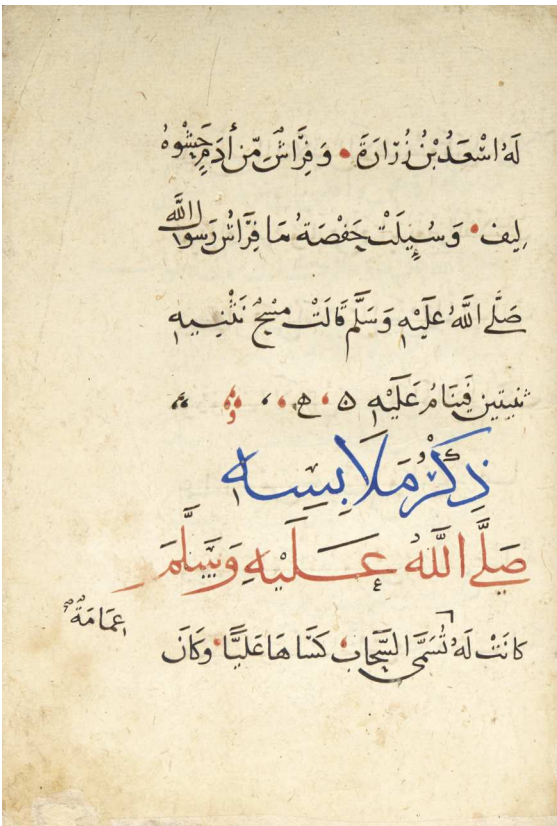 لَهُ اسْعَدُ بْنُ زُرَارَةَ • وَفِرَاشٌ مِّنْ أَدَمٍ حَشْوُهُ
لِيف • وَسُيِلَتْ حَفْصَةُ مَا فِرَاشُ رَسُولِ اللَّه
صَلَّى اللَّهُ عَلَيْهِ وَسَلَّم قَالَتْ مِسْحٌ نَثْنِيهِ
ثنيتين فَيَنَامُ عَلَيْهِ
ذِكْرُ مَلَابِسِهِ
صَلَّى اللَّهُ عَلَيْهِ وَسَلَّمَ
عِمَامَةٌ صح
كَانَتْ لَهُ تُسَمَّى السَّحَاب • كَسَاهَا عَلِيًّا • وَكَانَ